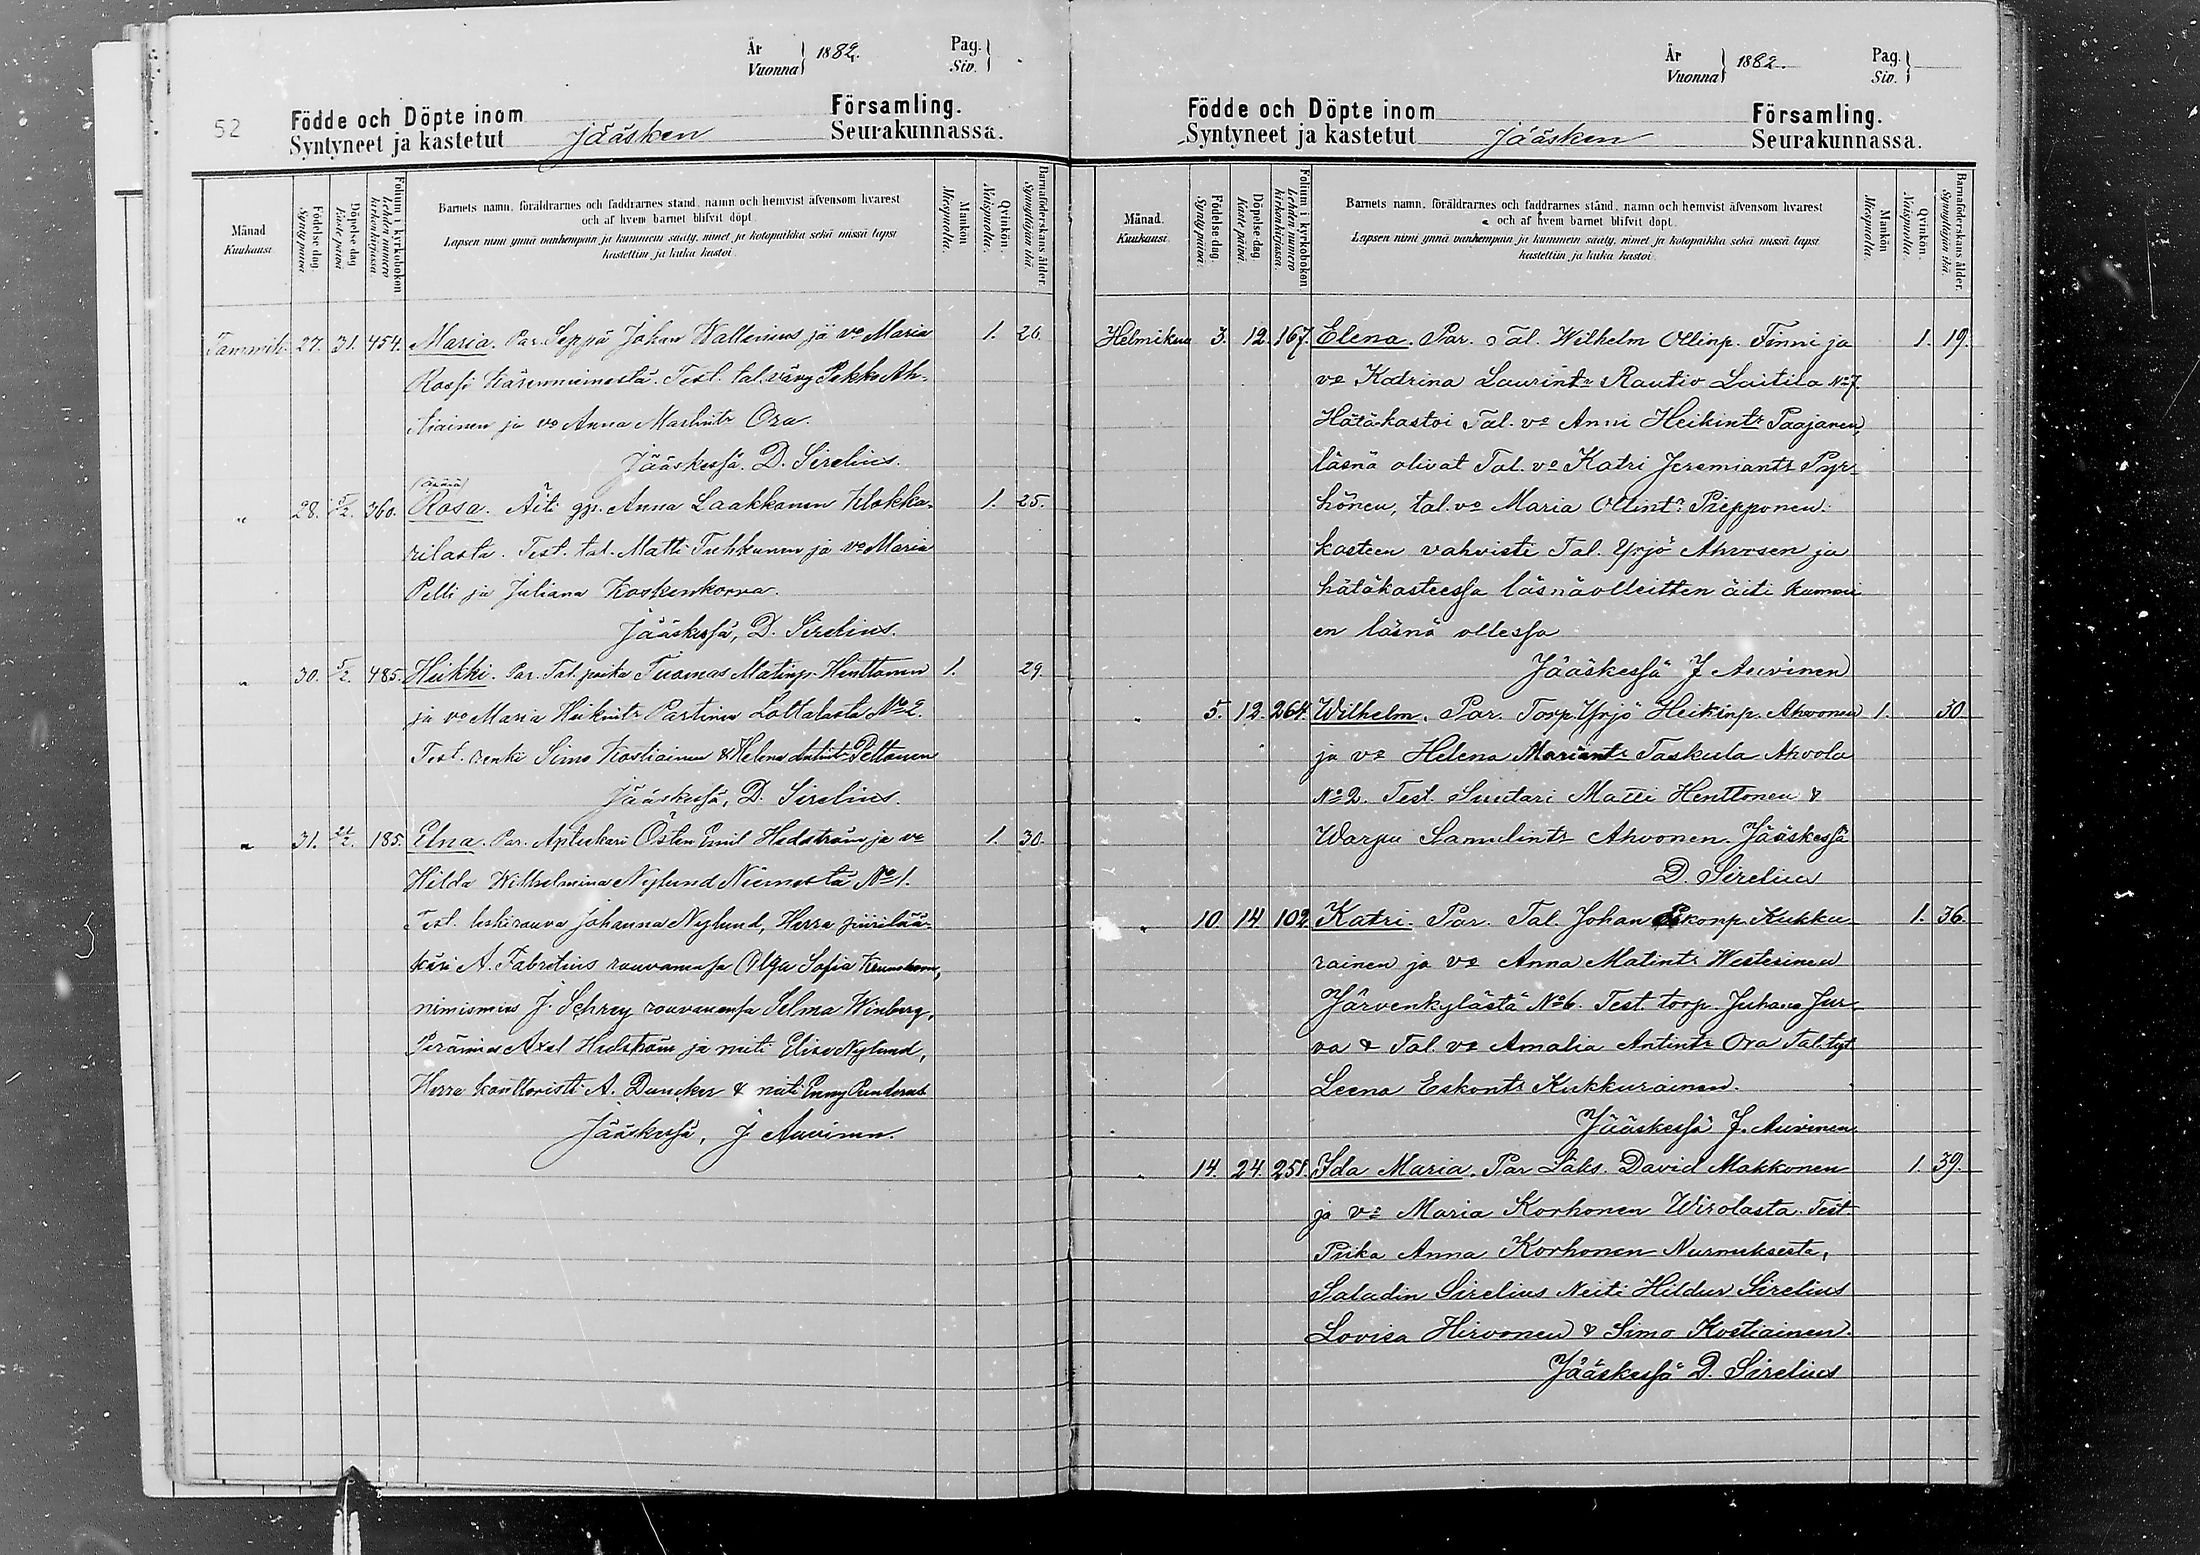 52
År
Vuonna
1882.
Pag.
Siv.
Födde och Döpte inom
Syntyneet ja kastetut
Jääsken
Församling.
Seurakunnassa.
Månad
Kuukausi
Födelse dag.
Synty päivä
Döpelse dag
Kaste päivä
Folium i kyrkoboken
Lehden numero
kirkonkirjassa
Barnets namn, föräldrarnes och faddrarnes stånd, namn och hemvist äfvensom hvarest
och af hvem barnet blifvit döpt.
Lapsen nimi ynnä vanhempain ja kummein sääty, nimet ja kotopaikka sekä missä lapsi
kastettiin ja kuka kastoi.
Mankön
Miespuolia.
Qvinkön.
Naispuolia.
Barnaföderskans ålder.
Synnyttäjän ikä.
Tammik. 27. 31. 454. Maria. Par. Seppä Johan Wallenius ja vo Maria 1. 26.
Rossi Kärenniemestä. Test. tal. vävy Pekka Ah-
tiainen ja vo Anna Martintr Ora.
Jääskessä. D. Sirelius.
" 28. 5/2. 360. Rosa. Äiti gp. Anna Laakkonen Klokka- 1. 25.
rilasta. Test. tal. Matti Tuhkunen ja vo Maria
Pelli ja Juliana Koskenkorva.
Jääskessä, D. Sirelius.
" 30. 5/2. 485. Heikki. Par. Tal. poika Tuomas Matinp. Henttonen 1. 29.
ja vo Maria Heikintr Partinen Lottalasta No 2.
Test. renki Simo Kostiainen & Helena Antint Peltonen
Jääskessä, D. Sirelius.
" 31. 21/2. 185. Elna. Par. Aptekari Östen Emil Hedström ja vo 1. 30.
Hilda Wilhelmina Nylund Niemestä No 1.
Test. leskirouva Johanna Nylund, Herra piirilää-
käri A. Fabritius rouvanensa Olga Sofia
nimismies J. Schrey rouvanensa Selma Winberg,
Perämies Axel Hedström ja neiti Elise Nylund,
Herra konttoristi A. Duncker & neiti Enny
Jääskessä, J Auvinen.
År
Vuonna
1882.
Pag.
Siv.
Födde och Döpte inom
Syntyneet ja kastetut
Jääsken
Församling.
Seurakunnassa.
Månad.
Kuukausi
Födelse dag.
Synty päivä.
Döpelse dag
Kaste päivä.
Folium i kyrkoboken
Lehden numero
kirkonkirjassa.
Barnets namn, föräldrarnes och faddrarnes stånd, namn och hemvist äfvensom hvarest
och af hvem barnet blifvit döpt.
Lapsen nimi ynnä vanhempain ja kummein sääty, nimet ja kotopaikka sekä missä lapsi
kastettiin ja kuka kastoi.
Mankön
Miespuolia.
Qvinkön.
Naispuolia.
Barnaföderskans ålder.
Synnyttäjän ikä.
Helmikuu 3. 12. 167. Elena. Par. Tal. Wilhelm Ollinp. Finni ja 1. 19.
vo Katrina Laurintr Rautio Laitila No 7
Hätäkastoi Tal. vo Anni Heikintr Paajanen,
läsnä olivat Tal. vo Katri Jeremiantr Pyr-
hönen, tal. vo Maria Ollintr Piepponen.
kasteen vahvisti Tal. Yrjö Ahvosen ja
hätäkasteessa läsnäolleitten äiti kummi
en läsnä ollessa
Jääskessä J Auvinen
" 5. 12. 264. Wilhelm. Par. Torp. Yrjö Heikinp. Ahvonen 1. 30
ja vo Helena Mariantr Taskula Ahvola
No 2. Test. Suutari Matti Henttonen &
Warpu Samulintr Ahvonen. Jääskessä
D. Sirelius
" 10. 14. 102. Katri. Par. Tal. Johan Eskonp. Kukku- 1. 36.
rainen ja vo Anna Matintr Westerinen
Järvenkylästä No 6. Test. torp. Juhana Jur-
va & Tal. vo Amalia Antintr Ora Tal. tyt
Leena Eskontr Kukkurainen.
Jääskessä J. Auvinen.
" 14. 24. 251. Ida Maria. Par Itäks. David Makkonen 1. 39.
ja vo Maria Korhonen Wirolasta. Test.
Piika Anna Korhonen Nurmuksesta,
Saladin Sirelius Neiti Hildur Sirelius
Lovisa Hirvonen & Simo Kostiainen.
Jääskessä D. Sirelius